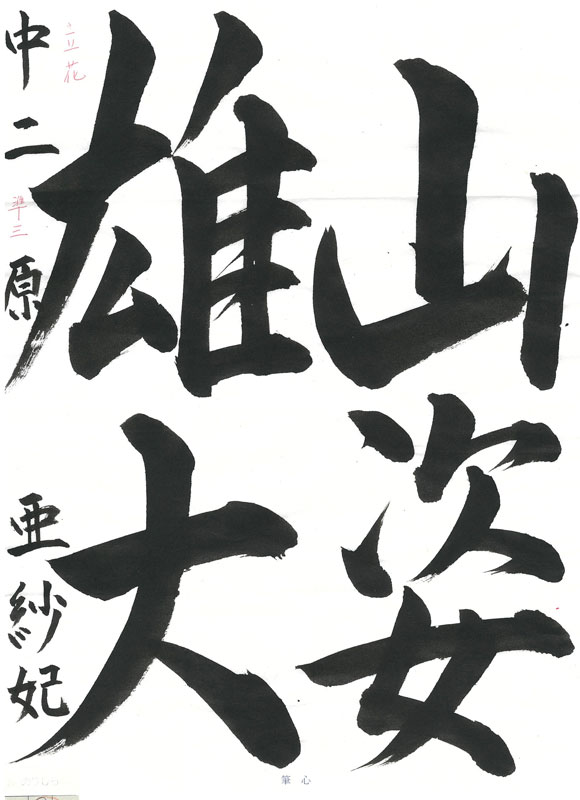 山姿
雄大
立花
中二 準三 原 亜紗妃
筆心